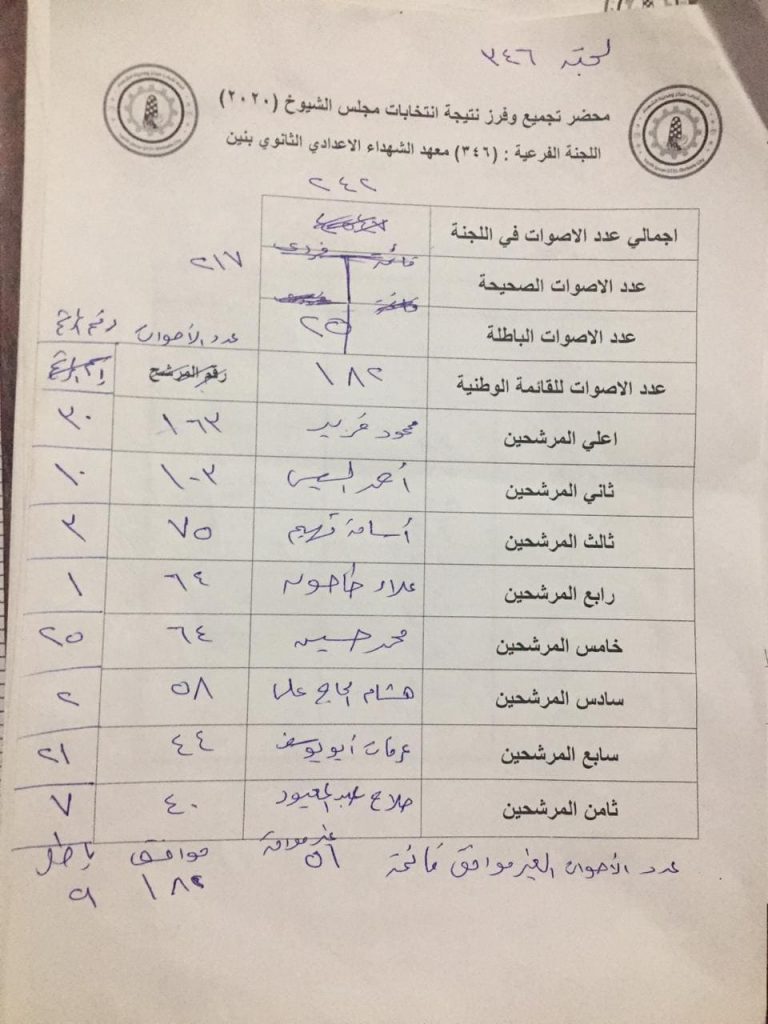 لجنة ٣٤٦
محضر تجميع وفرز نتيجة انتخابات مجلس الشيوخ (٢٠٢٠)
اللجنة الفرعية : (٣٤٦) معهد الشهداء الاعدادي الثانوي بنين
٢٤٢
اجمالي عدد الاصوات في اللجنة
قائمة فردى
عدد الاصوات الصحيحة ٢١٧
عدد الاصوات الباطلة ٢٥ عدد الأصوات
عدد الاصوات للقائمة الوطنية ١٨٢ رقم المرشح
اعلي المرشحين محمود فريد ١٦٣ ٣٠
ثاني المرشحين أحمد السيسى ١٠٣ ١٠
ثالث المرشحين أسامة فهيم ٧٥ ٣
رابع المرشحين علاء طاحون ٦٤ ١
خامس المرشحين محمد حسين ٦٤ ٢٥
سادس المرشحين هشام الحاج على ٥٨ ٢
سابع المرشحين عرفات أبو يوسف ٤٤ ٢١
ثامن المرشحين صلاح عبد المعبود ٤٠ ٧
عدد الأصوات الغير موافق قائمة غير موافق موافق باطل
٥١ ١٨٢ ٩